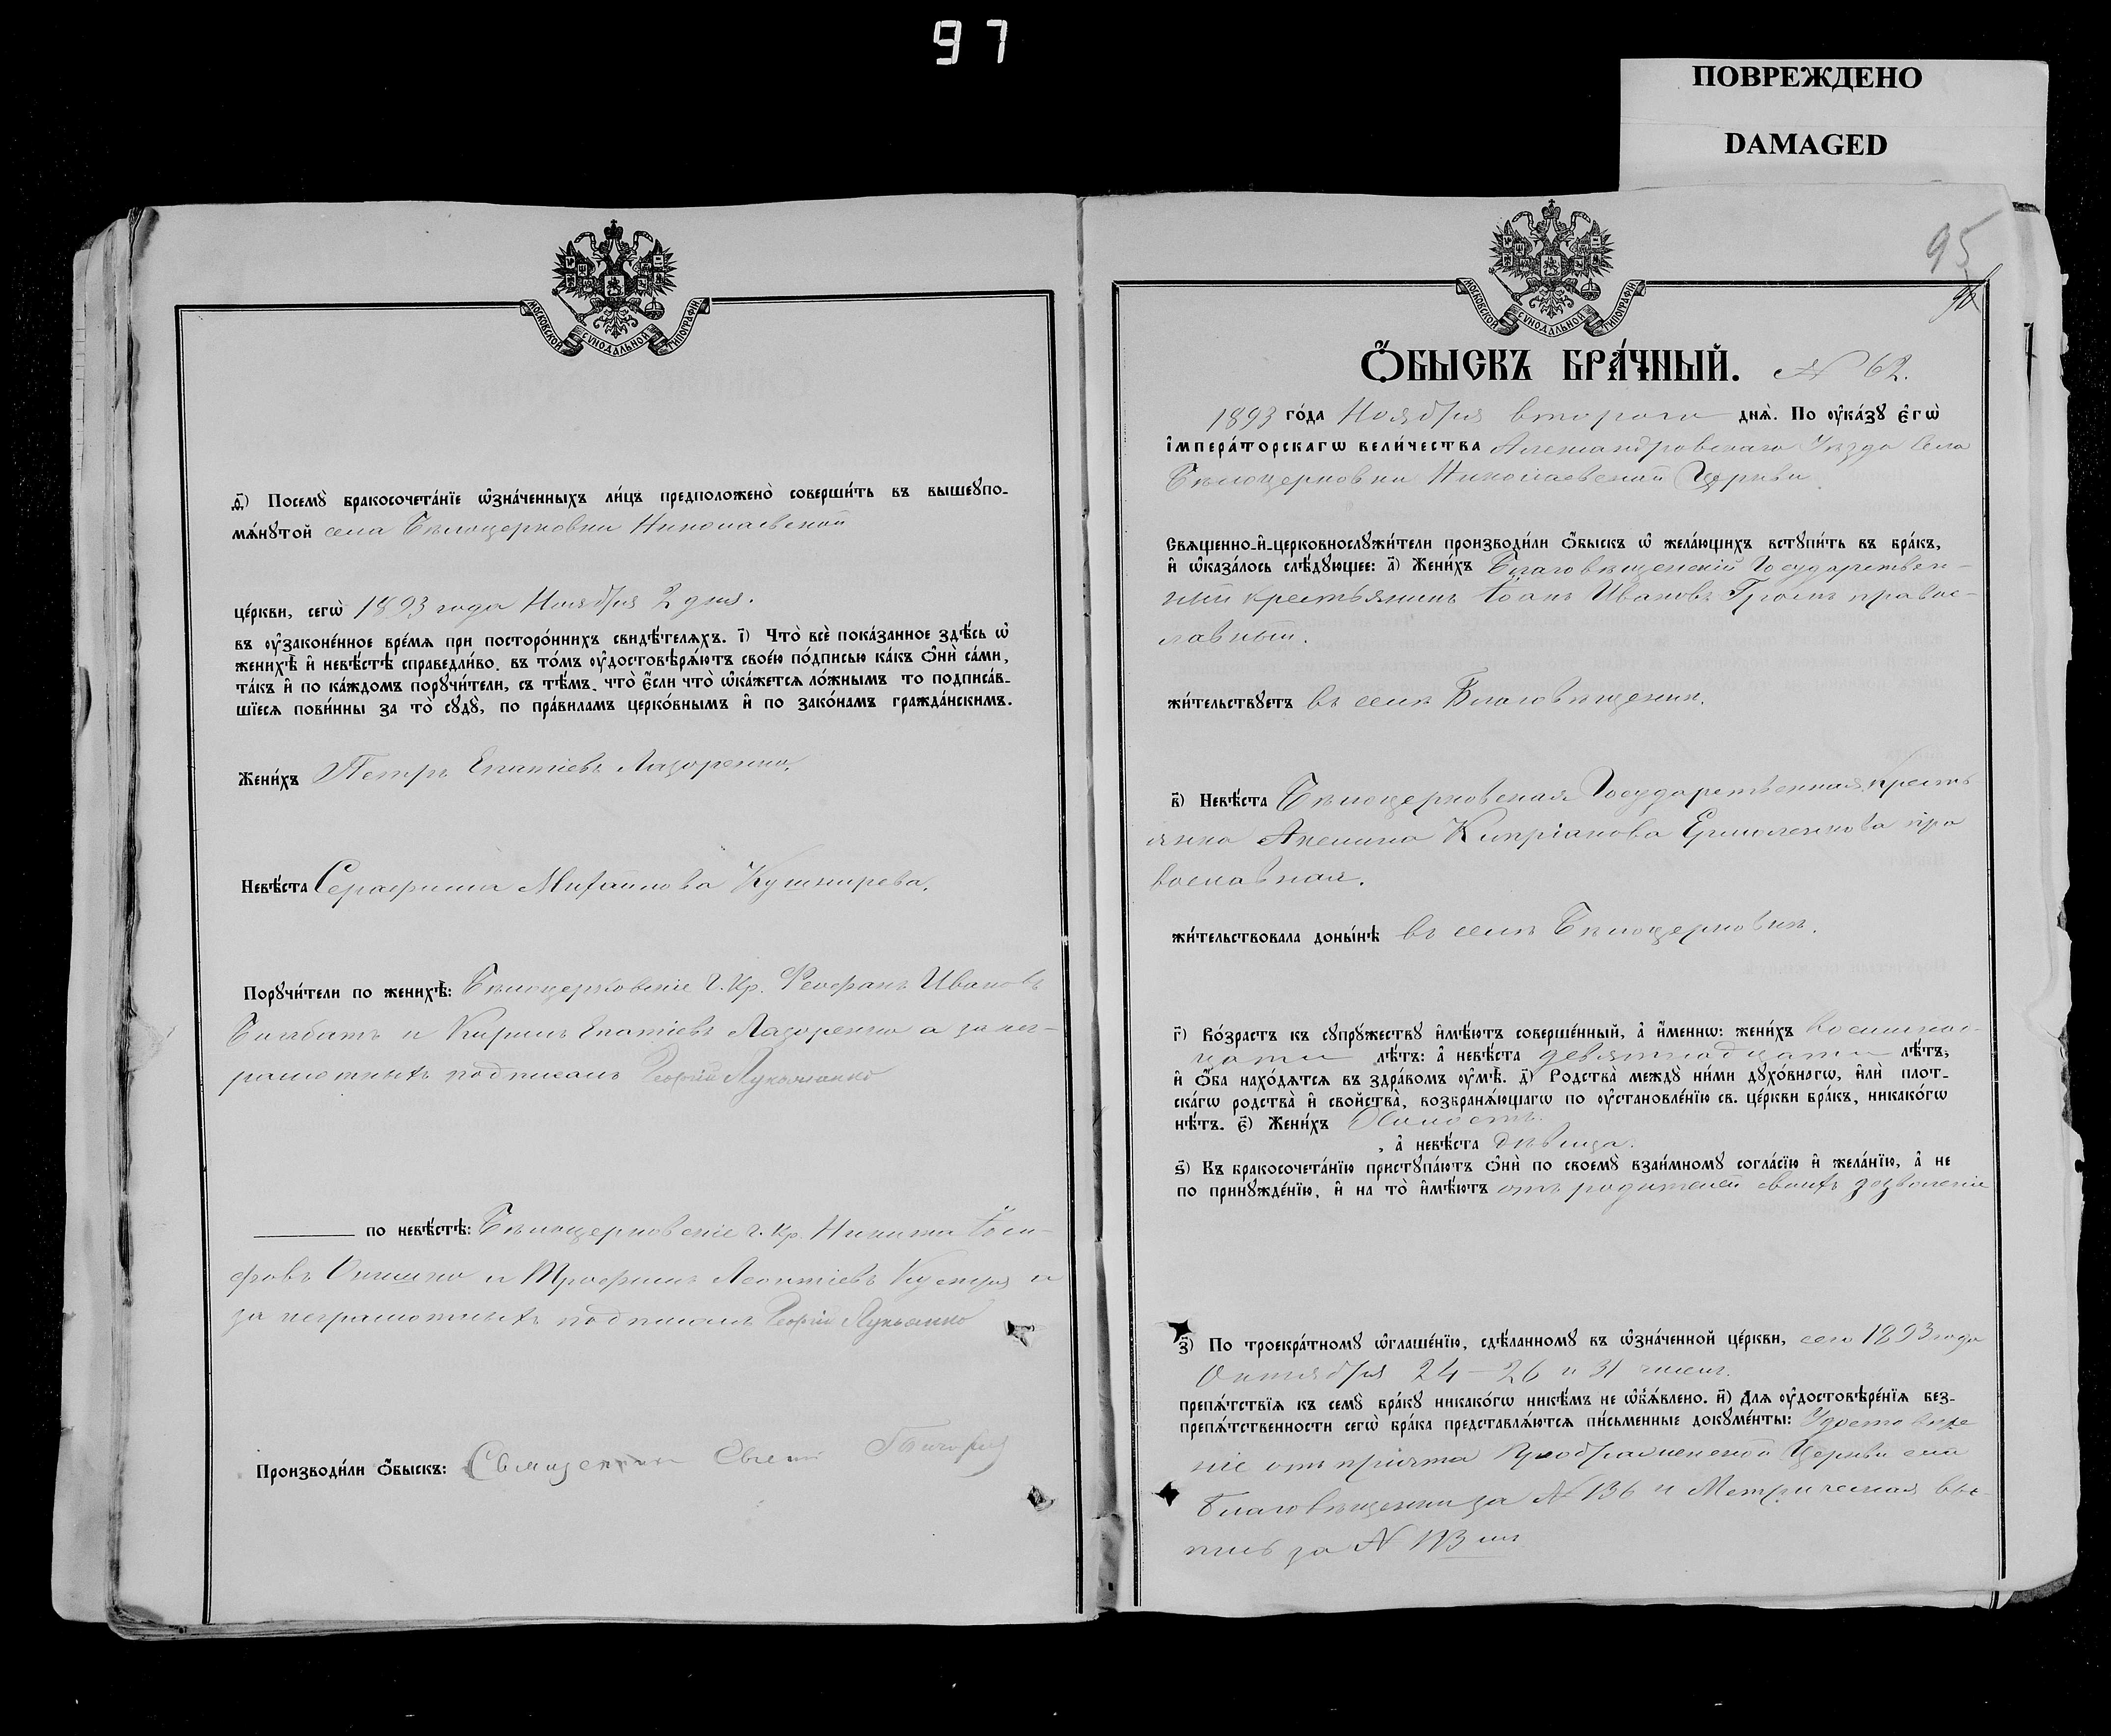 97
ПОВРЕЖДЕНО
DAMAGED
МОСКОВСКОЙ СѴНОДАЛЬНОЙ ТИПОГРАФІИ
д҃) Посемꙋ̀ бракосочета́нїе ѡ҆зна́ченныхъ ли́цъ предположено̀ соверши́ть въ вышеꙋпо-
мѧ́нꙋтой села Бѣлоцерковки Николаевской
це́ркви, сегѡ̀ 1893 года Ноября 2 дня.
въ ᲂу҆зако́ненное вре́мѧ при посторо́ннихъ свидѣ́телѧхъ. і҃) Что̀ всѐ пока́занное здѣ́сь ѡ҆
женихѣ̀ и҆ невѣ́стѣ справедли́во, въ то́мъ ᲂу҆достовѣрѧ́ютъ свое́ю по́дписью ка́къ ѻ҆нѝ са́ми,
та́къ и҆ по ка́ждомъ порꙋчи́тели, съ тѣ́мъ, что̀ є҆́сли что̀ ѡ҆ка́жетсѧ ло́жнымъ то подписа́в-
шїесѧ пови́нны за то̀ сꙋдꙋ̀, по пра́виламъ церко́внымъ и҆ по зако́намъ гражда́нскимъ.
Жени́хъ Петръ Епатіевъ Лазоренко.
Невѣ́ста Серафима Михаилова Кушнирева.
Порꙋчи́тели по женихѣ̀: Бѣлоцерковскіе Г. Кр. Феофанъ Ивановъ
и Кирилъ Епатіевъ Лазоренко а за нег-
рамотныхъ подписалъ Георгій Лукьяненко
по невѣ́стѣ: Бѣлоцерковскіе г. Кр. Никита Іоси-
фовъ Онишко и Трофимъ Леонтіевъ а
за неграмотныхъ подписалъ Георгій
Производи́ли ѻ҆́быскъ: Священникъ Евгеній
МОСКОВСКОЙ СѴНОДАЛЬНОЙ ТИПОГРАФІИ
95
Ѻ҆́БЫСКЪ БРА́ЧНЫЙ. № 62.
1893 го́да Ноября второго днѧ̀. По ᲂу҆ка́зꙋ є҆гѡ̀
і҆мпера́торскагѡ вели́чества Александровскаго Уѣзда Села
Бѣлоцерковки Николаевской Церкви
Свѧщенно-и҆-церковнослꙋжи́тели производи́ли ѻ҆́быскъ ѡ҆ жела́ющихъ встꙋпи́ть въ бра́къ,
и҆ ѡ҆каза́лось слѣ́дꙋющее: а҃) Жени́хъ Благовѣщенскій Государствен-
ный крестьянинъ Іоанъ Ивановъ православ-
лавный.
жи́тельствꙋетъ въ селѣ Благовѣщенкѣ.
в҃) Невѣ́ста Бѣлоцерковская Государственная крестъ
янка Акилина Кипріанова Ермоленкова пра
вославная.
жи́тельствовала доны́нѣ въ селѣ Бѣлоцерковкѣ.
г҃) Во́зрастъ къ сꙋпрꙋ́жествꙋ и҆мѣ́ютъ соверше́нный, а҆ и҆́меннѡ: жени́хъ восемнад-
цати лѣ́тъ: а҆ невѣ́ста девятнадцати лѣ́тъ,
и҆ ѻ҆́ба нахо́дѧтсѧ въ здра́вомъ ᲂу҆мѣ̀. д҃) Родства̀ междꙋ̀ ни́ми дꙋхо́внагѡ, и҆лѝ плот-
ска́гѡ родства̀ и҆ сво́йства̀, возбранѧ́ющагѡ по ᲂу҆становле́нїю св. це́ркви бра́къ, никако́гѡ
нѣ́тъ. є҃) Жени́хъ Холостъ.
, а҆ невѣ́ста дѣвица.
ѕ҃) Къ бракосочета́нїю пристꙋпа́ютъ ѻ҆нѝ по своемꙋ̀ взаи́мномꙋ согла́сїю и҆ жела́нїю, а҆ не
по принꙋжде́нїю, и҆ на то̀ и҆мѣ́ютъ отъ родителей своихъ дозволеніе
з҃) По троекра́тномꙋ ѡ҆глаше́нїю, сдѣ́ланномꙋ въ ѡ҆зна́ченной це́ркви, сего 1893 года
Октября 24 – 26 и 31 чиселъ.
препѧ́тствїѧ къ семꙋ̀ бра́кꙋ никако́гѡ никѣ́мъ не ѡ҆б̾ѧ́влено. и҃) Длѧ ᲂу҆достовѣре́нїѧ без-
препѧ́тственности сегѡ̀ бра́ка представлѧ́ютсѧ пи́сьменные докꙋме́нты: Удостовѣре
ніе отъ причта Преображенской Церкви села
Благовѣщенки за № 136 и Метрическая вы-
пись за №